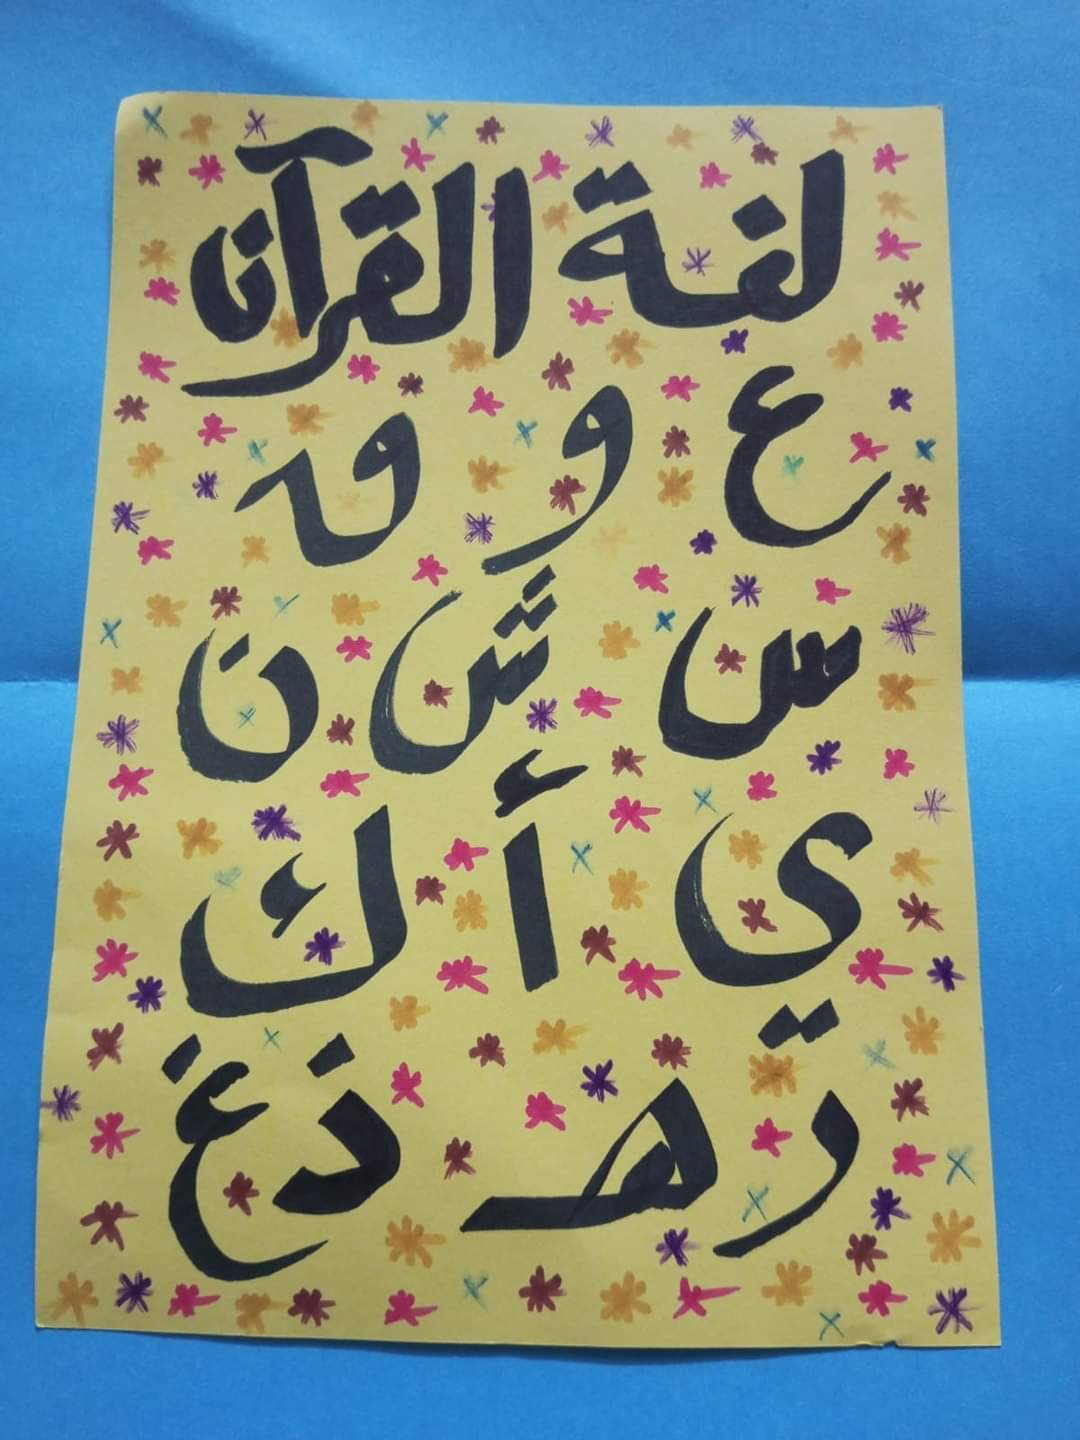 لغة القرآن
ع و م
س ش ن
ي أ ك
ز هـ ذ غ